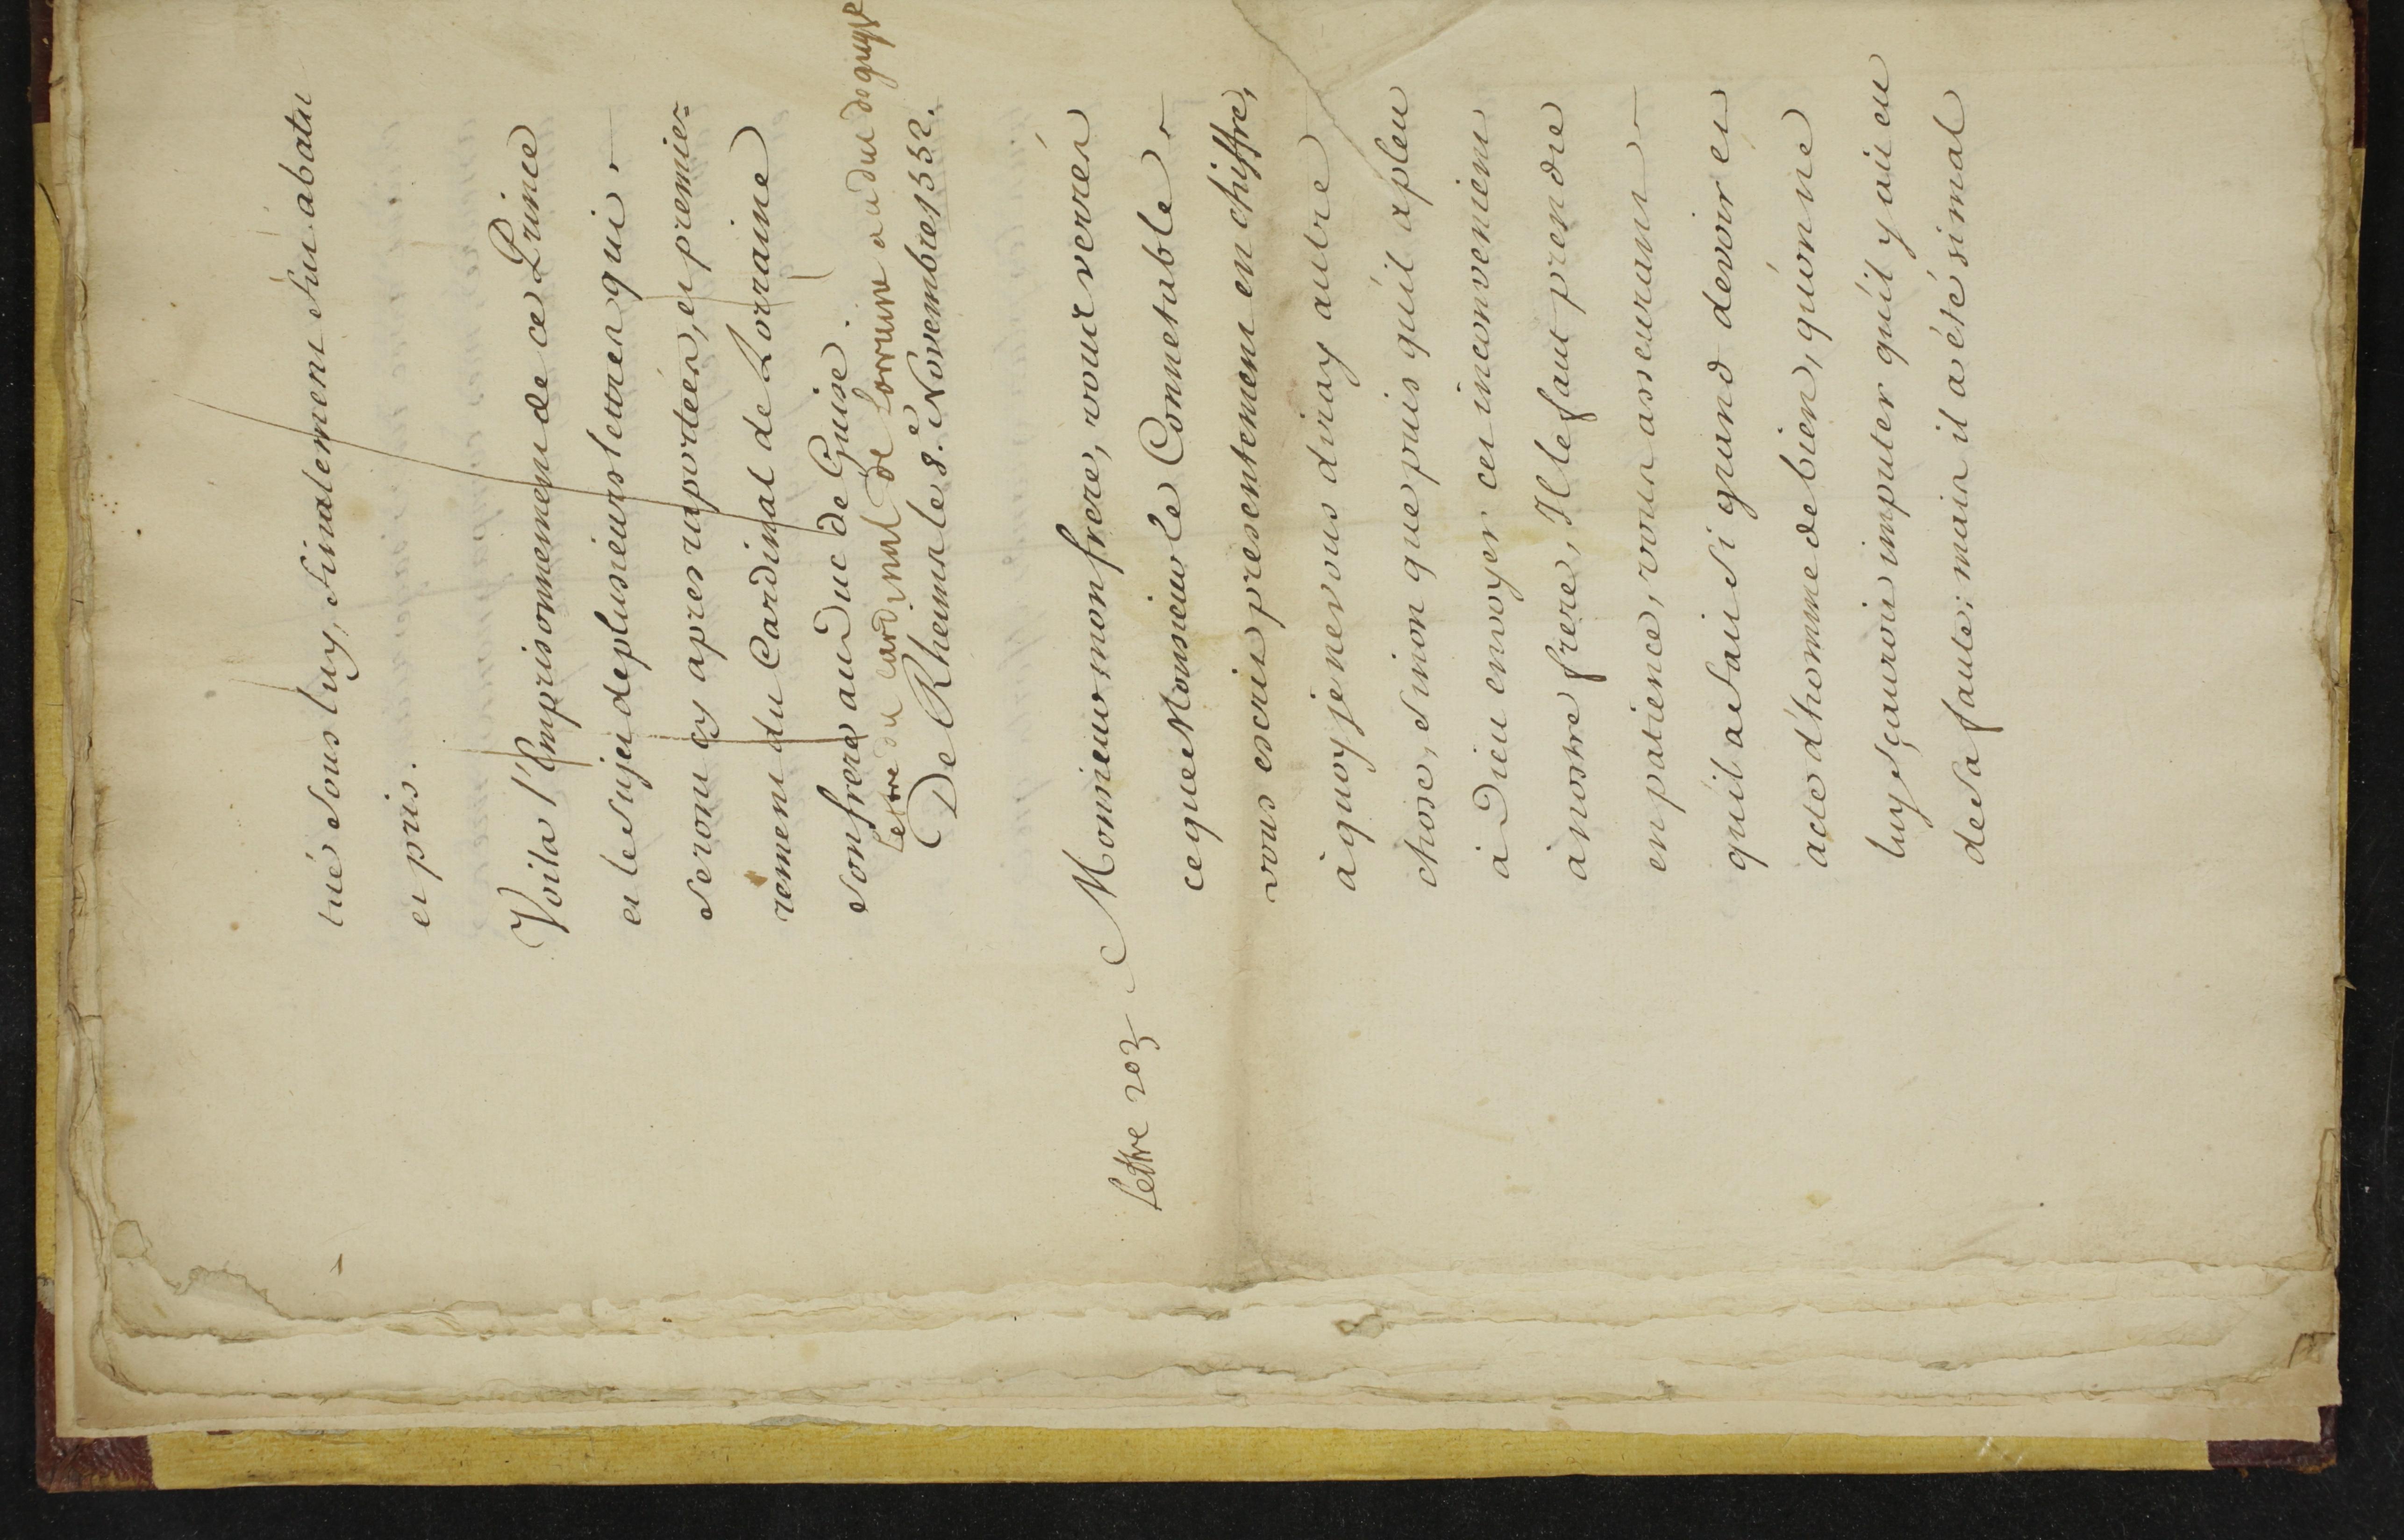 tué sous luy, finalement fut abatu
et pris.
Voila l'Emprisonnement de ce Prince
et le sujet de plusieurs lettres qui
seront cy apres raportées, et premie=
rement du Cardinal de Lorraine
son frere au Duc de Guise.
Lettre du cardinal de Lorraine au duc de guyse
De Rheims le 8.e Novembre 1552.
Lettre 203
Monsieur mon frere, vous verrés
ce que Monsieur le Connetable
vous escrit presentement en chiffre,
à quoy je ne vous diray autre
chose, sinon que puis qu'il a pleu
à Dieu envoyer cet inconvenient
à nostre frere, Il le faut prendre
en patience, vous asseurant
qu'il a fait si grand devoir et
acte d'homme de bien, qu'on ne
luy sçauroit imputer qu'il y ait eu
de sa faute; mais il a été si mal